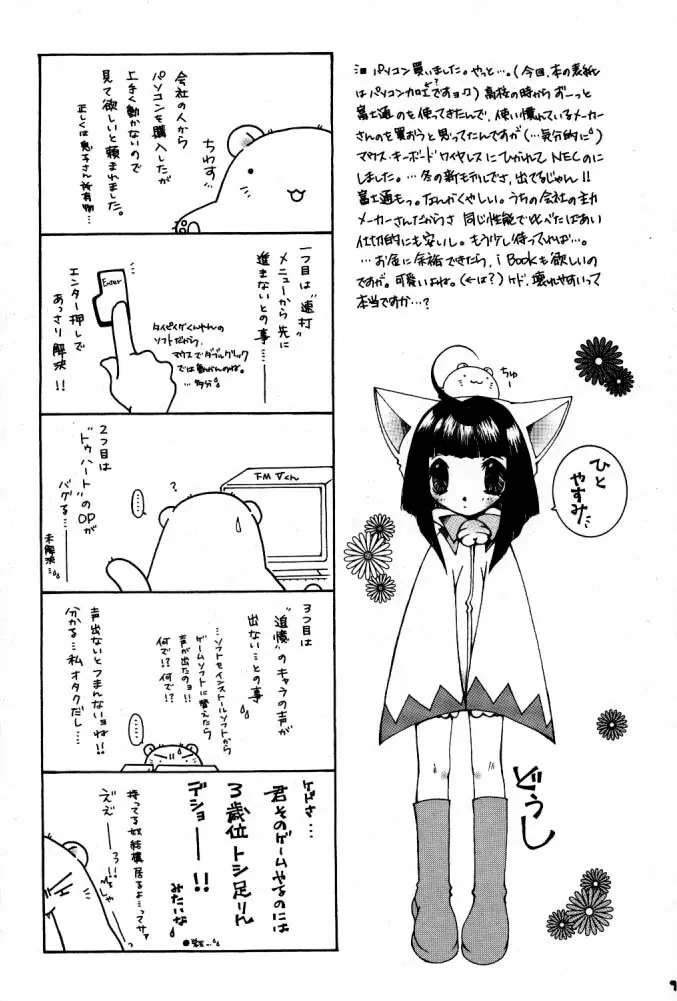 パソコン買いました。やっと…。(今回、本の表紙
はパソコン加工ですョ♪)高校の時からずーっと
富士通のを使ってきたんで、使い慣れているメーカー
さんのを買おうと思ってたんですが(…気分的に)
マウス・キーボードワイヤレスにひかれてNECのに
しました。…冬の新モデルでさ、出てるじゃん!!
富士通もっ。なんかくやしい。うちの会社の主力
メーカーさんだからさ 同じ性能で比べたばあい
仕切的にも安いし。もう少し待ってれば…。
…お金に余裕できたら、i Bookも欲しいの
ですが。可愛いよね。(←は?)ケド、壊れやすいって
本当ですか…?
会社の人から
パソコンを購入したが
上手く動かないので
見て欲しいと頼まれました。
正しくは息子さん所有物…
ちわす
一つ目は"連打"
メニューから先に
進まないとの事……
Enter
タイピングくんやんの
ソフトだから、
マウスでダブルクリック
では動かんのね。
…多分
エンター押しで
あっさり解決!!
2つ目は
"トゥハート"のOPが
バグる……
未解決…
……
?
FMVくん
3つ目は
"追憶"のキャラの声が
出ない…との事
…ソフトをインストールソフトから
ゲームソフトに替えたら
声が出たのョ!!
何で!?何で!?
声出ないとつまんないョね!!
分かる…私オタクだし…
……
ケドさ…
君そのゲームやるのには
3歳位トシ足りん
デショ——!!
みたいな
持ってる奴結構居るよ…ってサァ
ええ——っ!!
ちゅー
ひと
やすみ
どうし
9